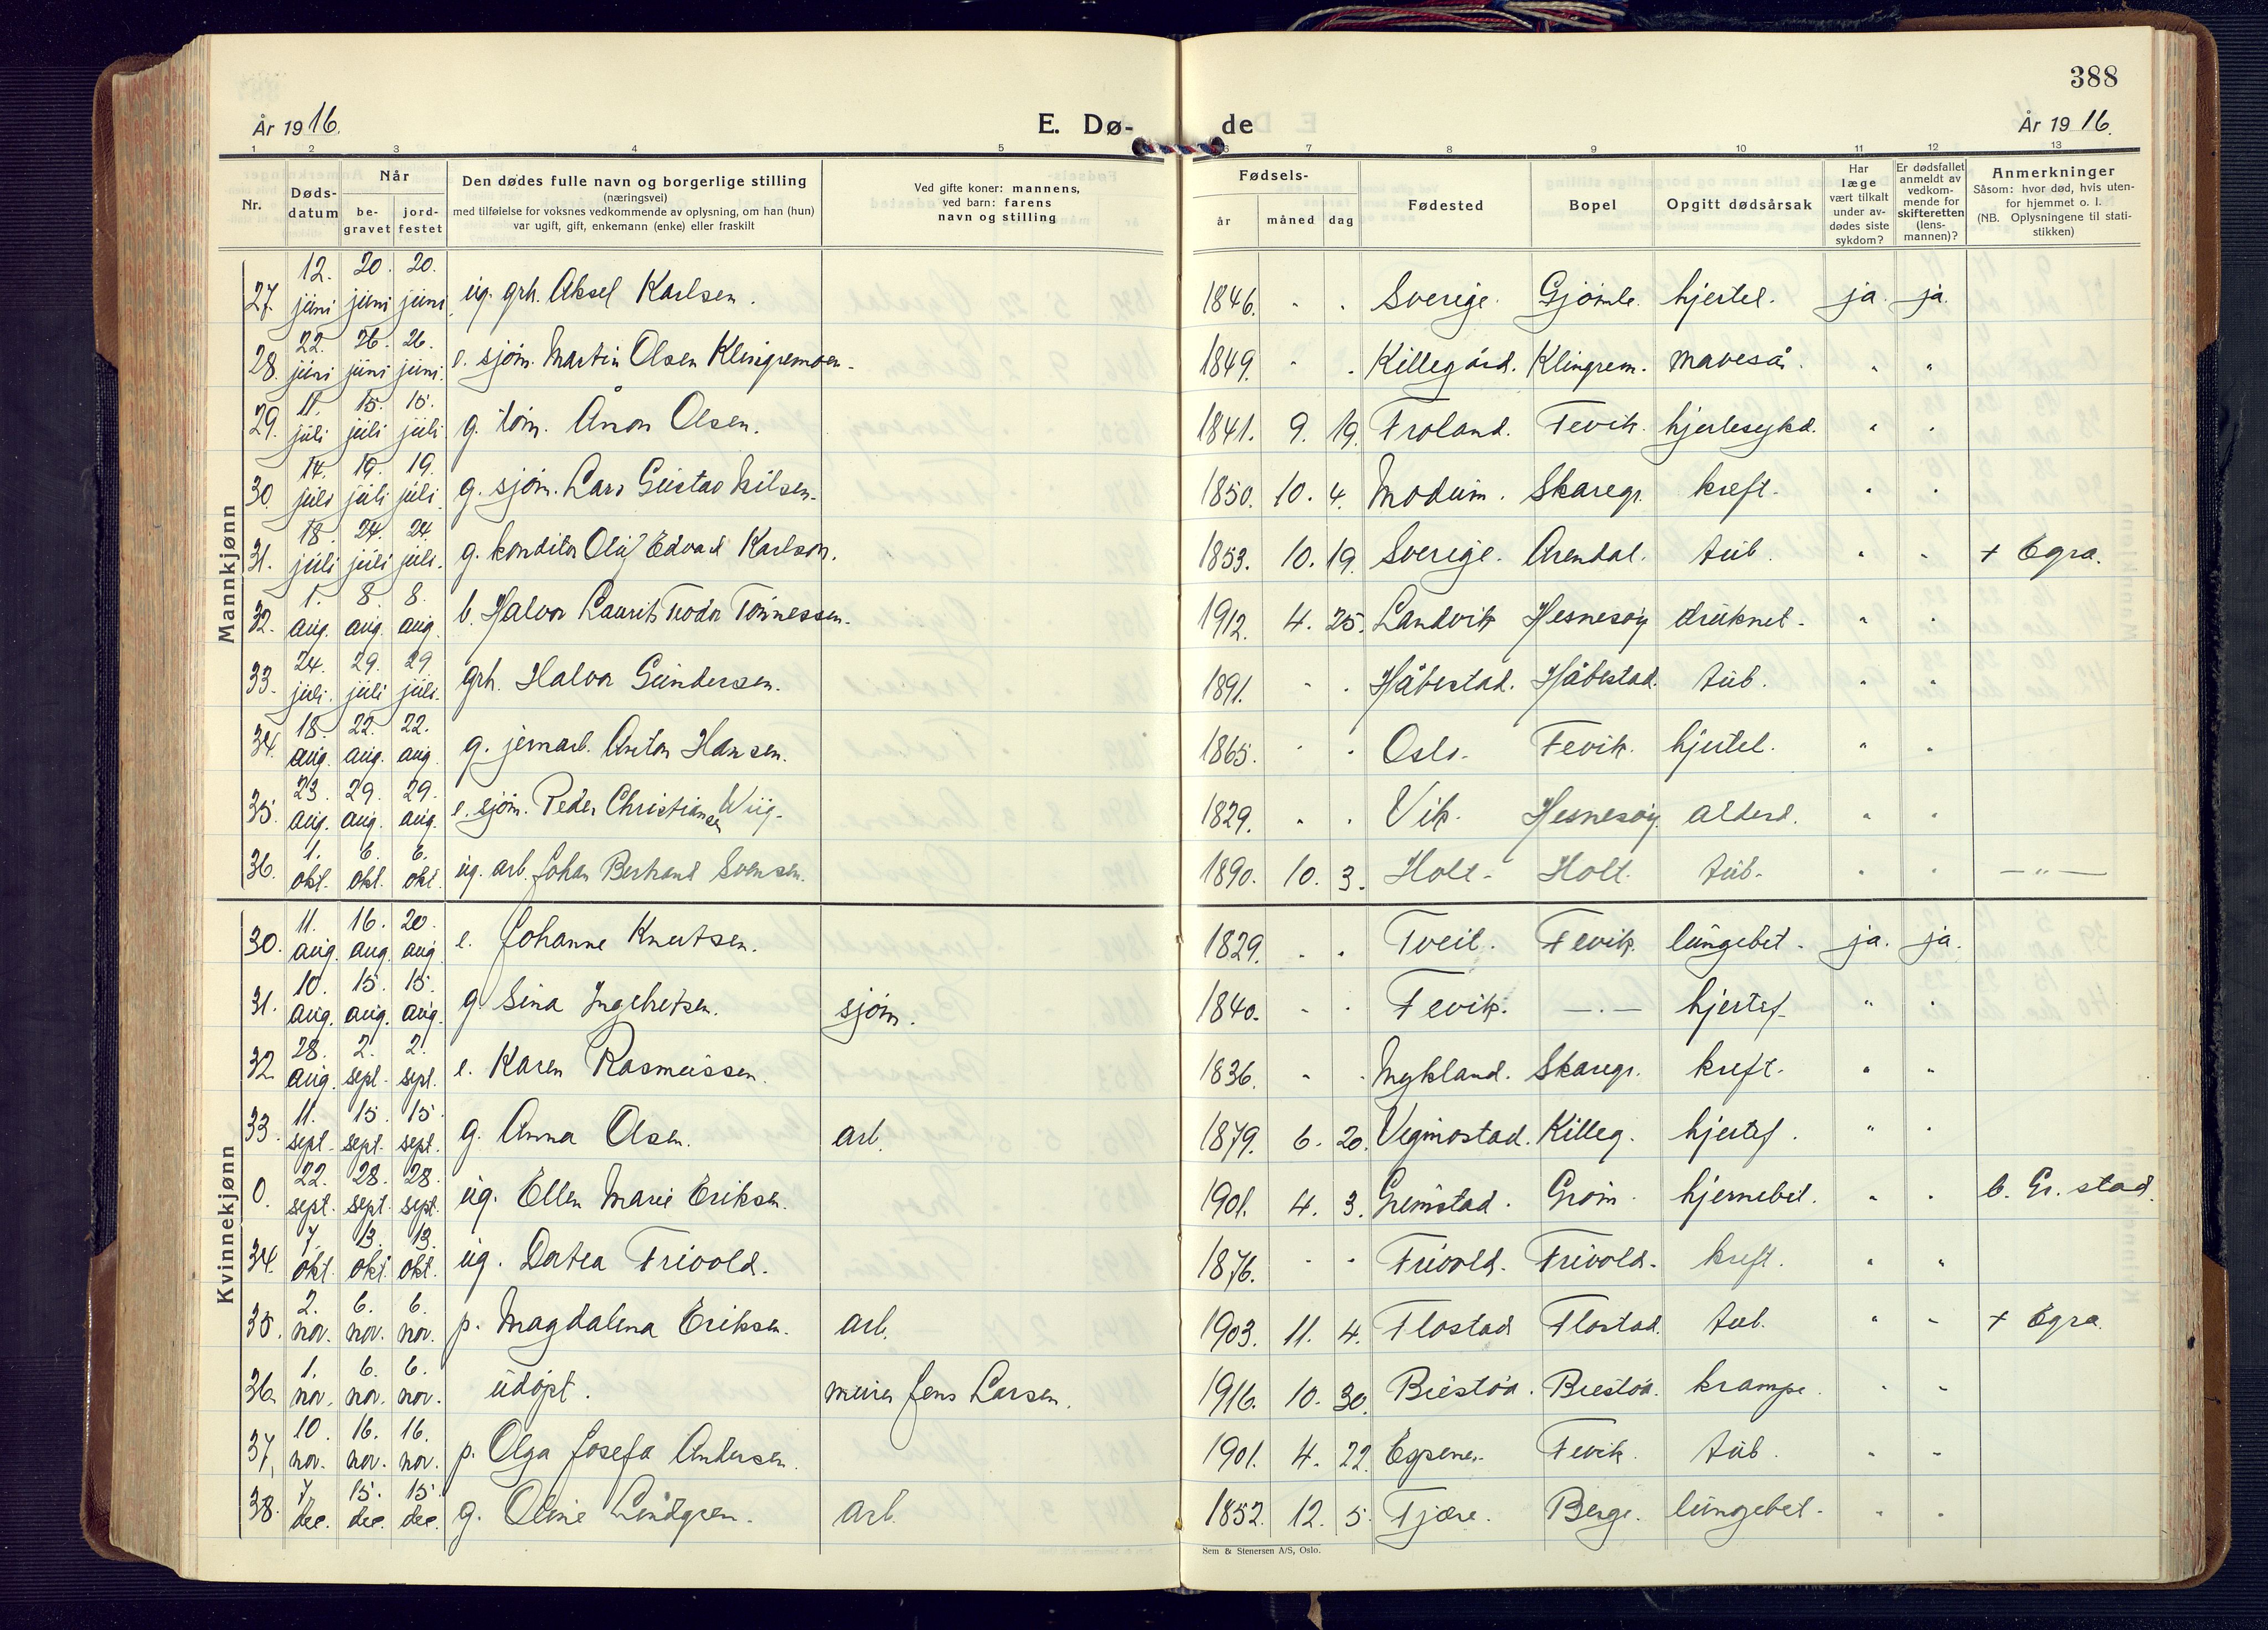 388
År 1916.
E. Dø-
de
År 1916.
1 2 3 4 5 6 7 8 9 10 11 12 13
Nr.
Døds-
datum
Når
be-
gravet
jord-
festet
Den dødes fulle navn og borgerlige stilling
(næringsvei)
med tilføielse for voksnes vedkommende av oplysning, om han (hun)
var ugift, gift, enkemann (enke) eller fraskilt
Ved gifte koner: mannens,
ved barn: farens
navn og stilling
Fødsels-
år måned dag
Fødested
Bopel
Opgitt dødsårsak
Har
læge
vært tilkalt
under av-
dødes siste
sykdom?
Er dødsfallet
anmeldt av
vedkom-
mende for
skifteretten
(lens-
mannen)?
Anmerkninger
Såsom: hvor død, hvis uten-
for hjemmet o. l.
(NB. Oplysningene til stati-
stikken)
Mannkjønn
27. 12. juni 20. juni 20. juni ug. grh. Aksel Karlsen. 1846. - . Sverige. Gjömle. hjertel. ja. ja.
28. 22. juni 26. juni 26. juni. e. sjöm. Martin Olsen Klingremoen. 1849. - . Killegård. Klingrem. mavesår. " "
29. 11. juli 15. juli 15. juli g. töm. Åron Olsen. 1841. 9. 19. Froland. Fevik. hjertesykd. " "
30. 14. juli 19. juli 19. juli g. sjöm. Lars Gustav Nilsen. 1850. 10. 4. Modum. Skaregr. kreft. " "
31. 18. juli 24. juli 24. juli. g. konditor Oluf Edvard Karlson. 1853. 10. 19. Sverige. Arendal. tub. " " + Egra.
32. 1. aug. 8. aug. 8. aug. b. Halvor Laurits Teodor Tönnessen. 1912. 4. 25. Landvik Hesnesöy druknet. " "
33. 24. juli. 29. juli 29 juli. grh. Halvor Gundersen. 1891. - . Håbestad. Håbestad. tub. " "
34. 18. aug. 22. aug. 22. aug. g. jernarb. Anton Hansen. 1865. . . Oslo. Fevik. hjertel. " "
35. 23. aug. 29. aug. 29. aug. e. sjöm. Peder Christiansen Wiig. 1829. . . Vik. Hesnesöy. alderd. " "
36. 1. okt. 6. okt. 6. okt. ug. arb. Johan Bertrand Svensen. 1890. 10. 3. Holt. Holt. tub. " " — " —
Kvinnekjønn
30. 11. aug. 16. aug. 20. aug. e. Johanne Knutsen. 1829. . . Tveit. Fevik. lungebet. ja. ja.
31. 10. aug. 15. aug. 15. aug. g. Sina Ingebretsen. sjöm. 1840. - . Fevik. — . — hjertef. " "
32. 28. aug. 2. sept. 2. sept. e. Karen Rasmussen. 1836. - . Mykland. Skaregr. kreft. " "
33. 11. sept. 15. sept. 15. sept. g. Anna Olsen. arb. 1879. 6. 20. Vigmostad. Killeg. hjertef. " "
0. 22. sept. 28. sept. 28. sept. ug. Ellen Marie Eriksen. 1901. 4. 3. Grimstad. Gröm. hjernebet. " " b. Gr. stad.
34. 7. okt. 13. okt. 13. okt. ug. Datea Frivold. 1876. . . Frivold. Frivold. kreft. " "
35. 2. nov. 6. nov. 6. nov. p. Magdalena Eriksen. arb. 1903. 11. 4. Flostad Flostad. tub. " " + Egra.
36. 1. nov. 6. nov. 6. nov. udöpt. murer Jens Larsen. 1916. 10. 30. krampe. " "
37. 10. nov. 16. nov. 16. nov. p. Olga Josefa Andersen. 1901. 4. 22. Fevik. tub. " "
38. 7. dec. 15. dec. 15. dec. g. Oline Lindgren. arb. 1852. 12. 5. Fjære. Berge. lungebet. " "
Sem & Stenersen A/S, Oslo.